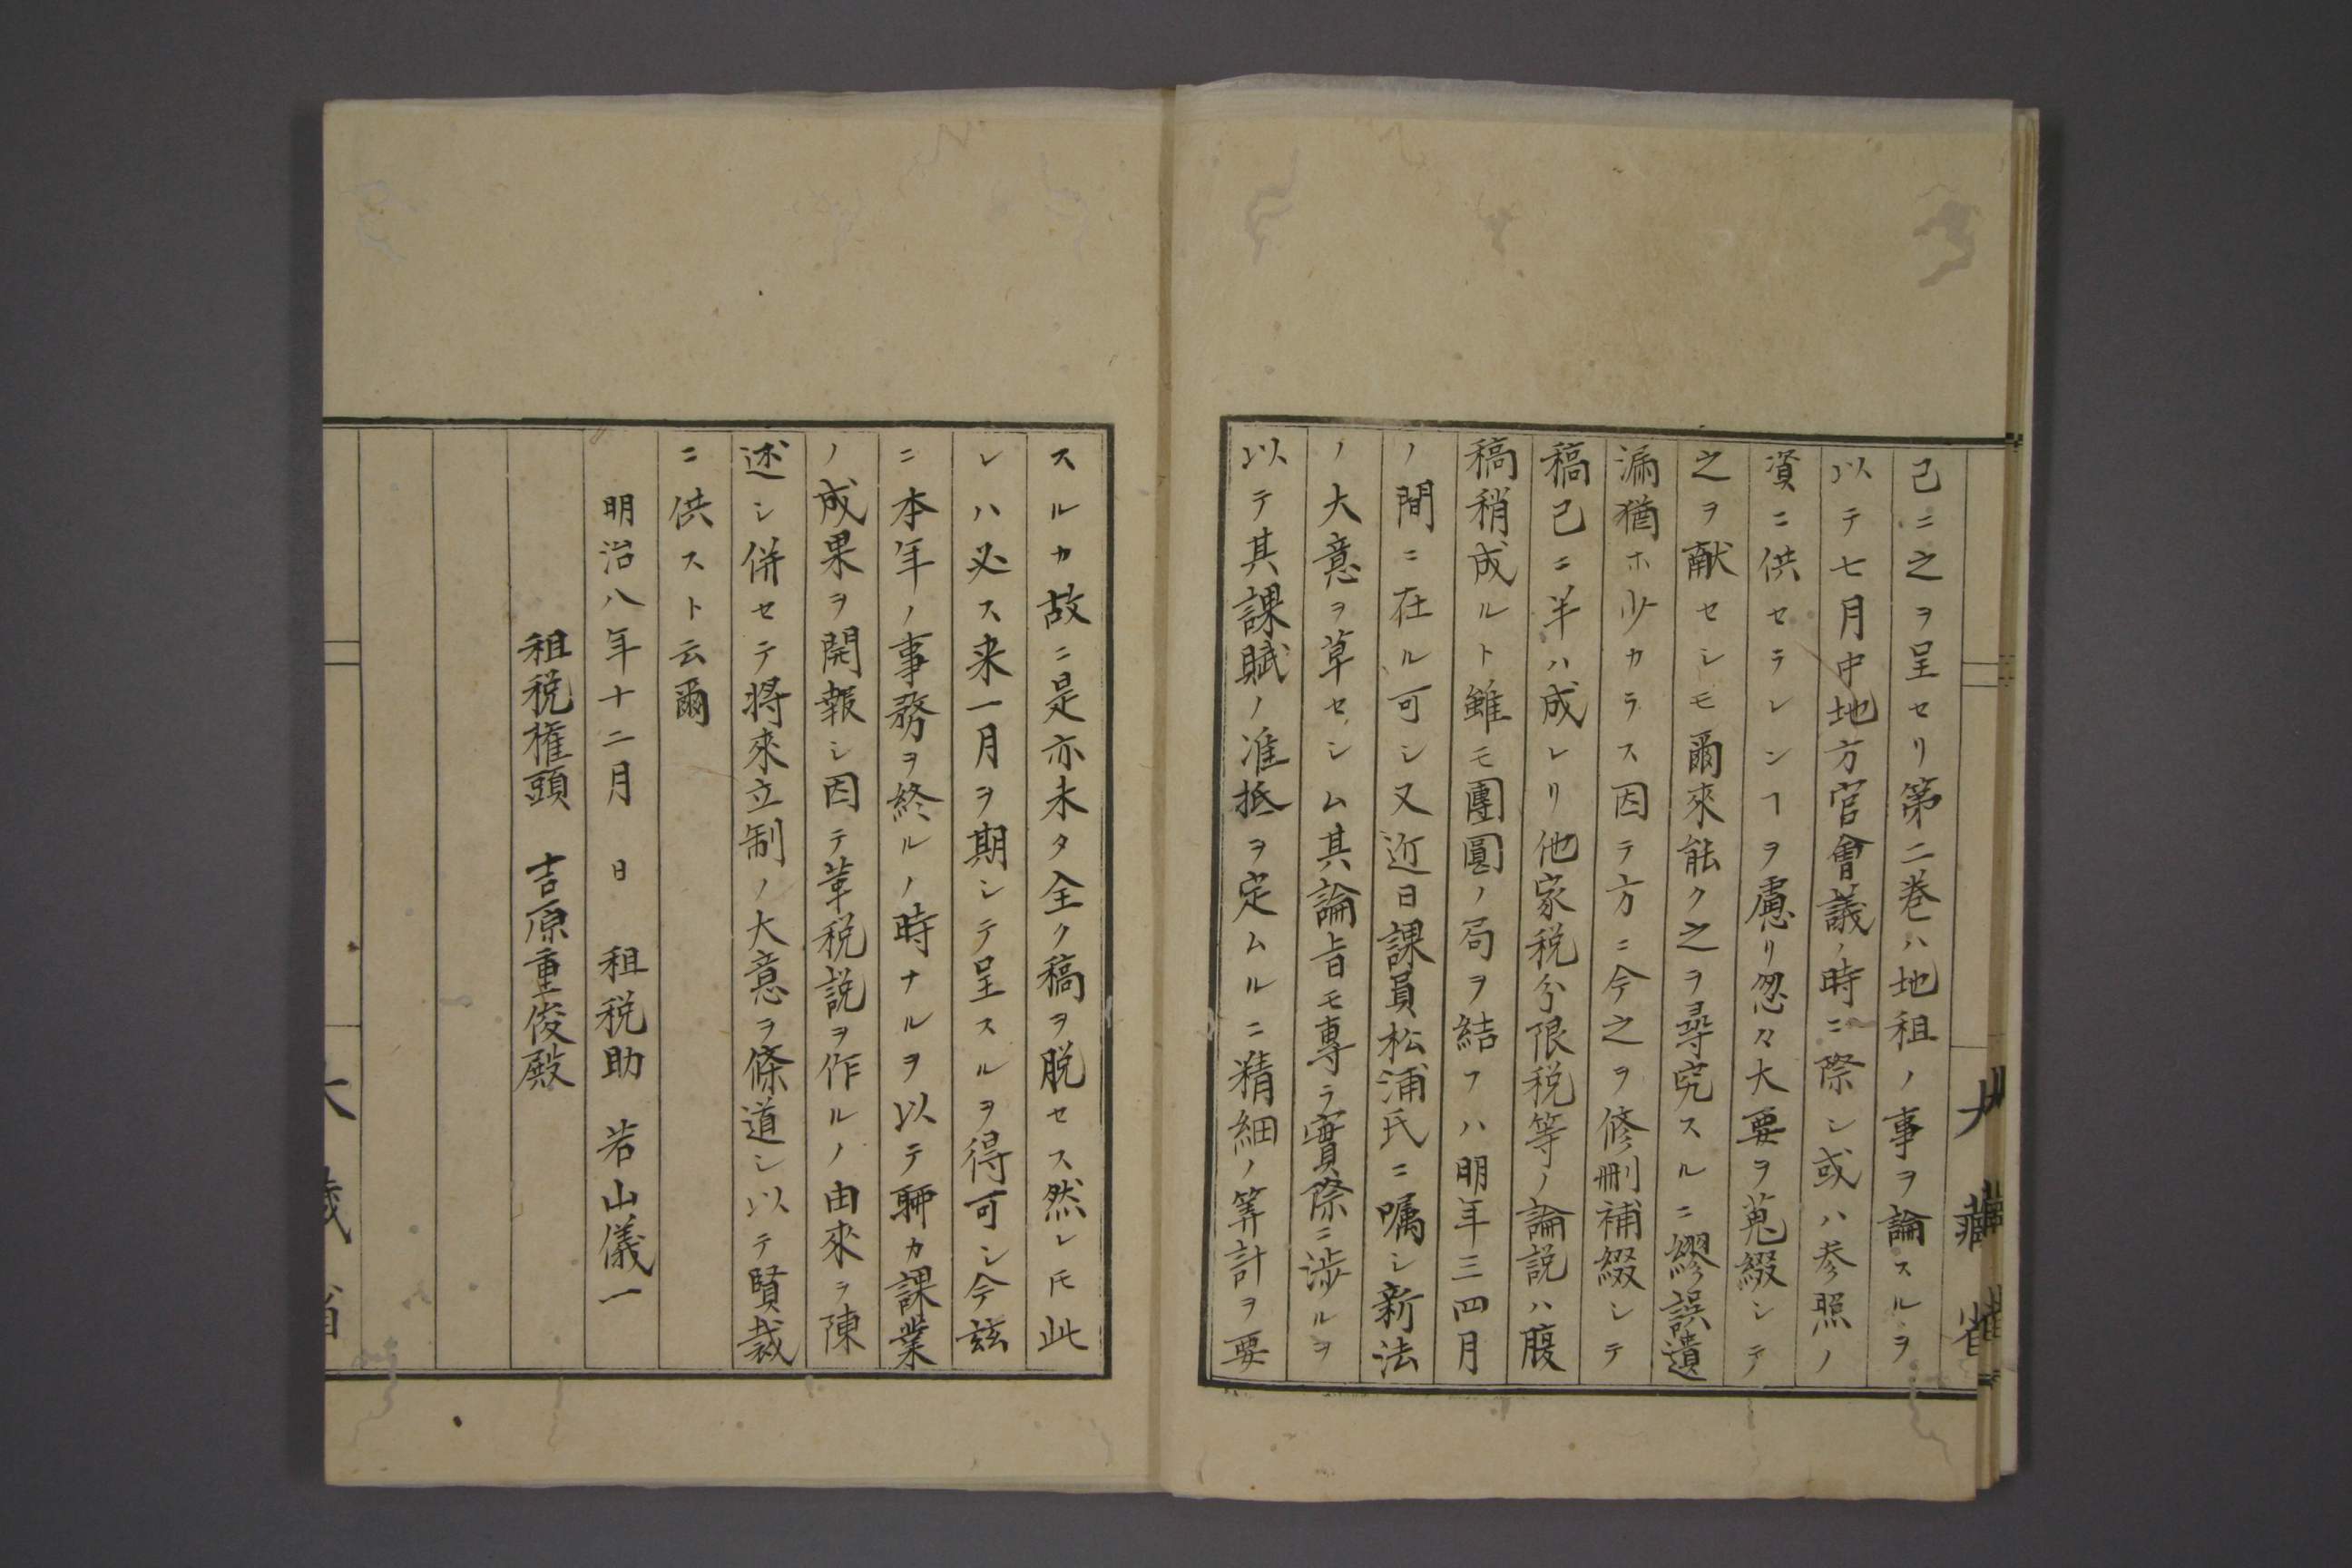 己ニ之ヲ呈セリ第二巻ハ地租ノ事ヲ論スルヲ
以テ七月中地方官會議ノ時ニ際シ或ハ参照ノ
資ニ供セラレンヿヲ慮リ怱々大要ヲ蒐綴シテ
之ヲ献セシモ爾來能ク之ヲ尋究スルニ繆誤遺
漏猶ホ少カラス因テ方ニ今之ヲ修刪補綴シテ
稿己ニ半ハ成レリ他家税分限税等ノ論説ハ腹
稿稍成ルト雖モ團圓ノ局ヲ結フハ明年三四月
ノ間ニ在ル可シ又近日課員松浦氏ニ嘱シ新法
ノ大意ヲ草セシム其論旨モ專ラ實際ニ渉ルヲ
以テ其課賦ノ准抵ヲ定ムルニ精細ノ筭計ヲ要
大藏省
スルカ故ニ是亦未タ全ク稿ヲ脱セス然レ𪜈此
レハ必ス来一月ヲ期シテ呈スルヲ得可シ今玆
ニ本年ノ事務ヲ終ルノ時ナルヲ以テ聊カ課業
ノ成果ヲ開報シ因テ革税説ヲ作ルノ由來ヲ陳
述シ併セテ將來立制ノ大意ヲ條道シ以テ賢裁
ニ供スト云爾
明治八年十二月　日　租税助　若山儀一
租税権頭　吉原重俊殿